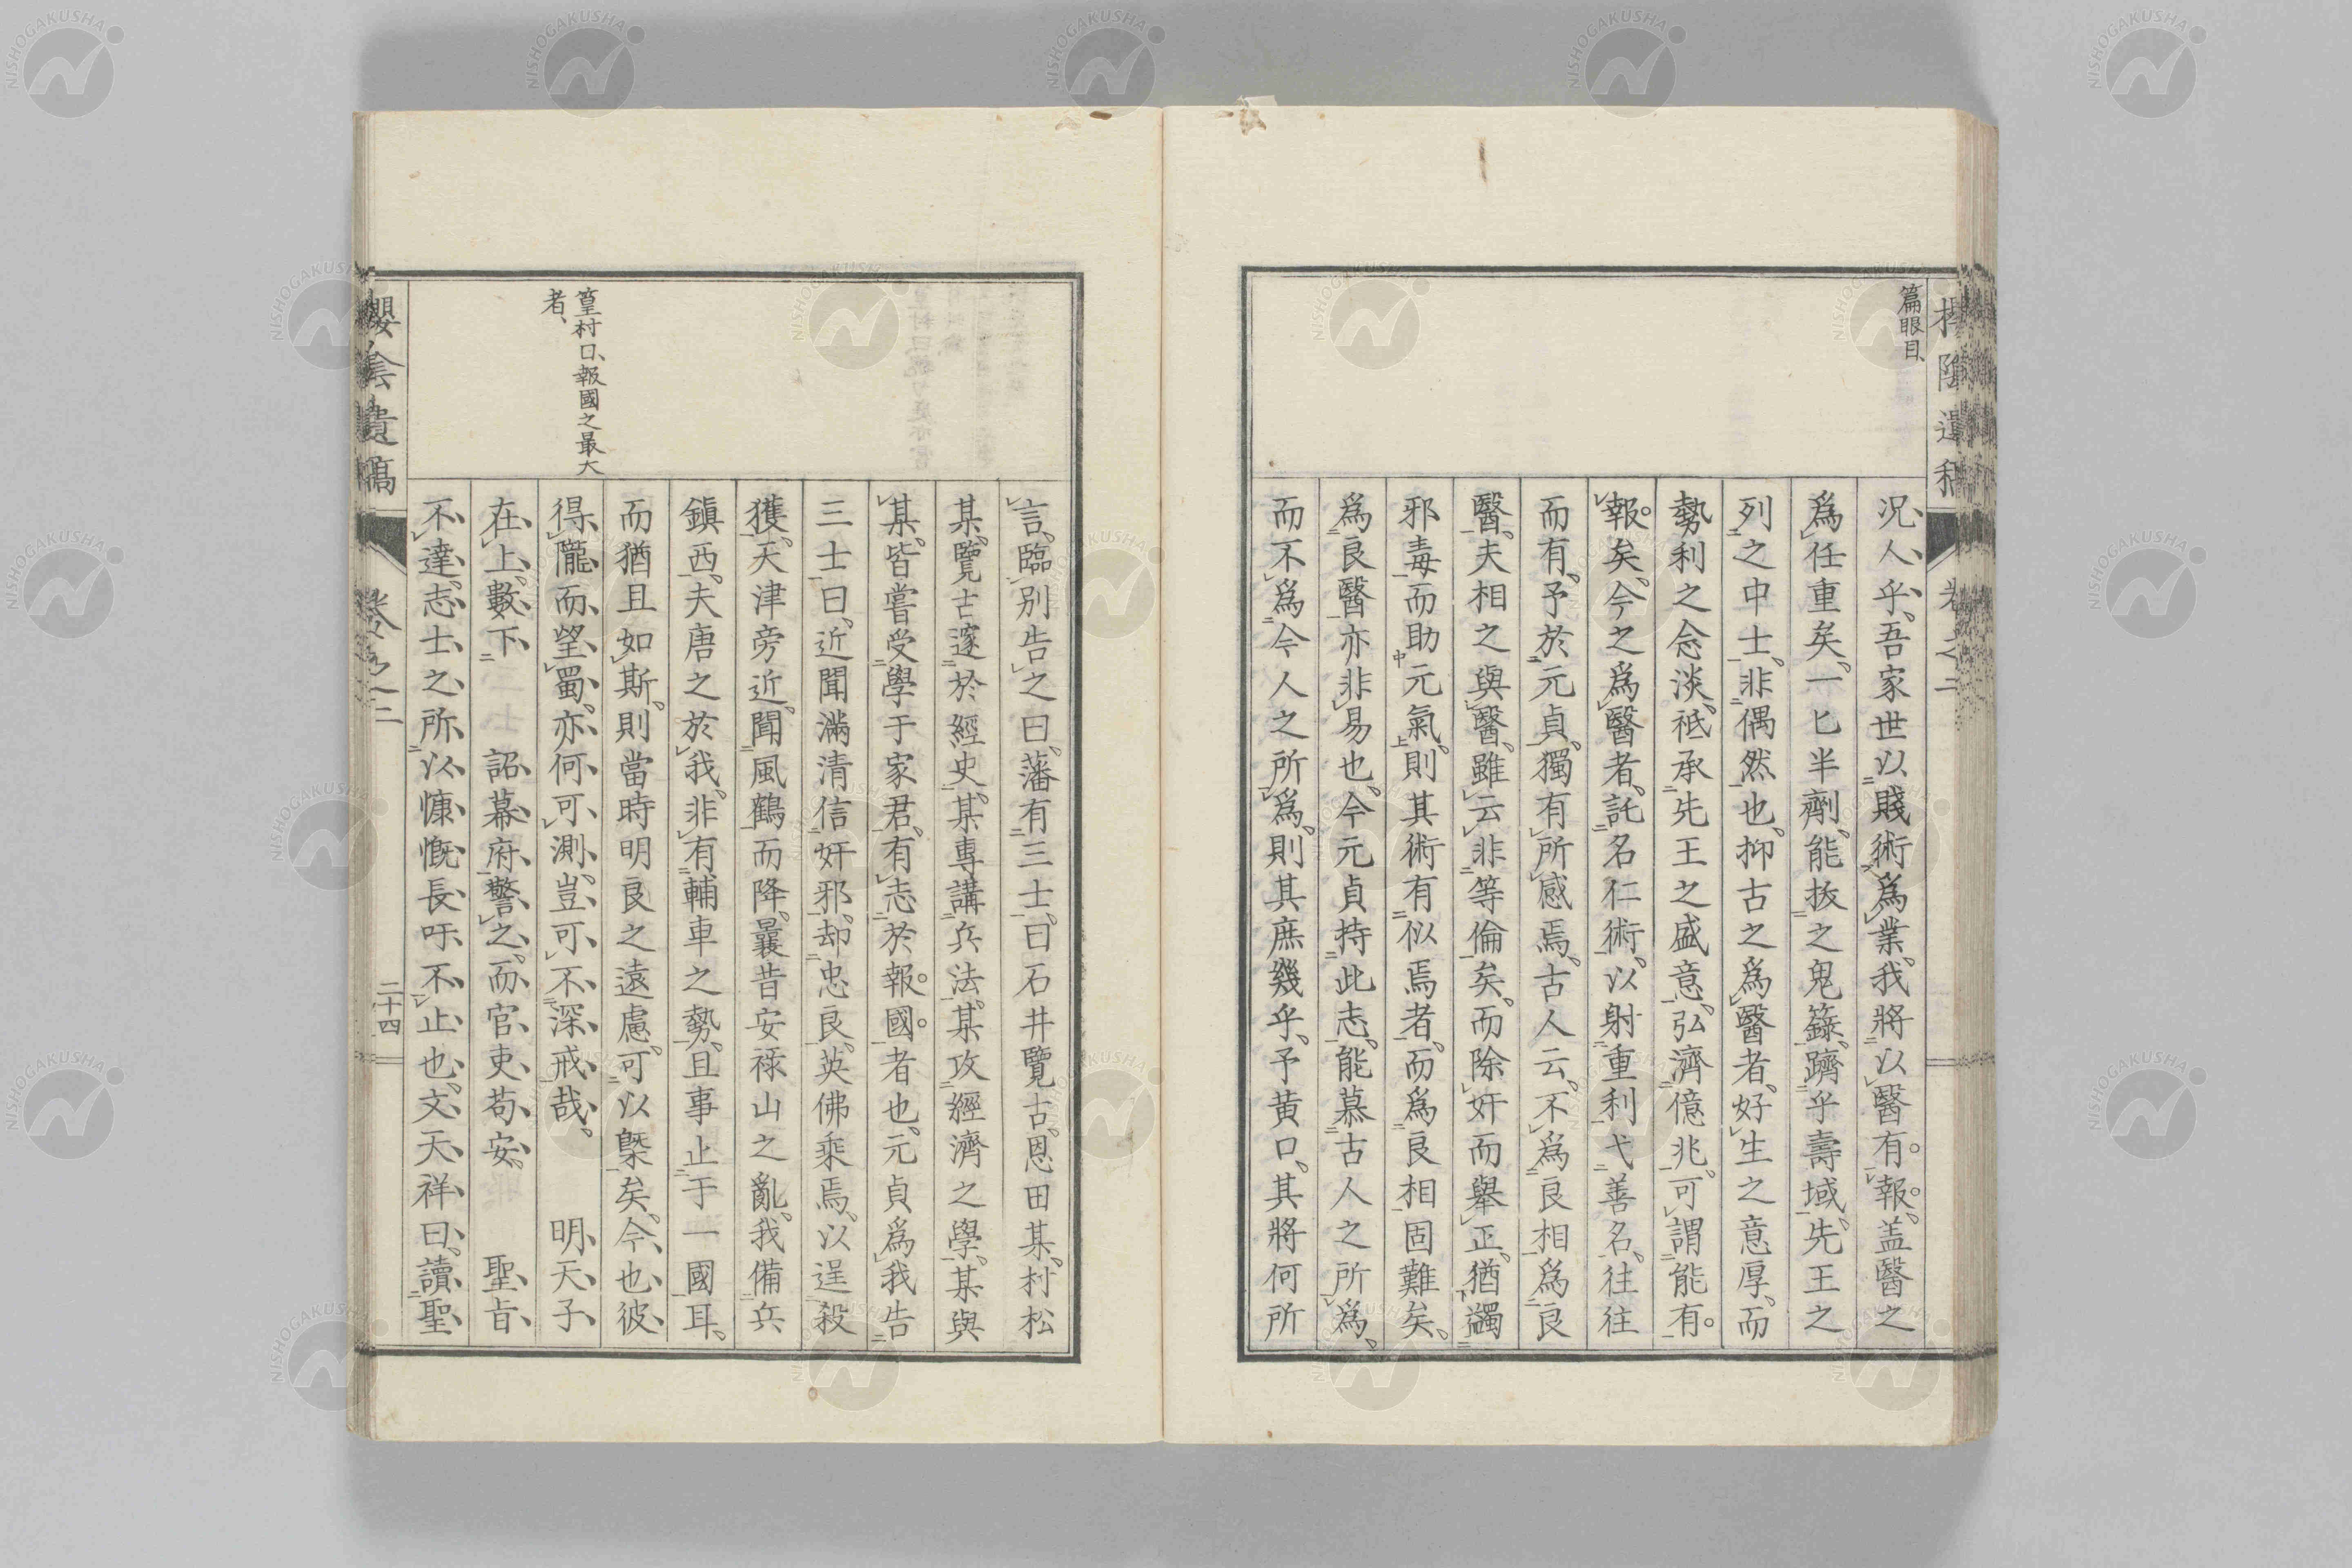 篇眼目、
況人乎、吾家世以賤術爲業、我將以醫有報、盖醫之
爲任重矣、一匕半劑、能扱之鬼籙、躋乎壽域、先王之
列之中士、非偶然也、抑古之爲醫者、好生之意厚、而
勢利之念淡、祗承先王之盛意、弘濟億兆、可謂能有
報矣、今之爲醫者、託名仁術、以射重利弋善名、往往
而有、予於元貞、獨有所感焉、古人云、不爲良相爲良
醫、夫相之與醫、雖云非等倫矣、而除奸而擧正、猶蠲
邪毒而助元氣、則其術有似焉者、而爲良相固難矣、
爲良醫亦非易也、今元貞持此志、能慕古人之所爲、
而不爲今人之所爲、則其庶幾乎、予黄口、其將何所
卷之二
言、臨別告之曰、藩有三士、曰石井覽古、恩田某、村松
某、覽古邃於經史、某專講兵法、某攻經濟之學、某與
某、皆嘗受學于家君、有志於報國者也、元貞爲我告
三士曰、近聞滿清信奸邪、却忠良、英佛乘焉、以逞殺
獲、天津旁近、聞風鶴而降、曩昔安祿山之亂、我備兵
鎭西、夫唐之於我、非有輔車之勢、且事止于一國耳、
而猶且如斯、則當時明良之遠慮、可以槩矣、今也彼
得隴而望蜀、亦何可測、豈可不深戒哉、 明天子
在上、數下 詔幕府警之、而官吏苟安、 聖旨
不達、志士之所以慷慨長吁不止也、文天祥曰、讀聖
篁村曰、報國之最大
者、
二十四
NISHOGAKUSHA